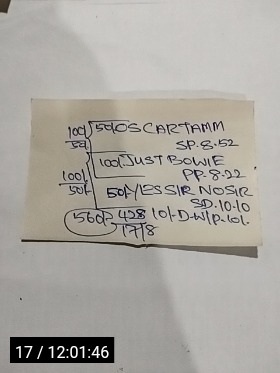 100/ 50/ OSCARTAMM
50/ SP.8.52
100/ JUST BOWIE
100/ PP.8.22
50/ 50/ YES SIR NO SIR
SD.10.10
560/- 428 10/-D-W/P.10/.
17/8
17 / 12:01:46